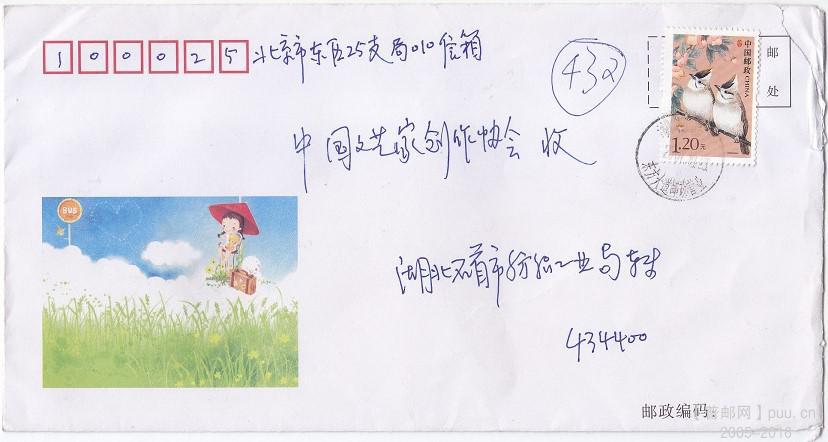 100025 北京市东区25支局010信箱
432
邮
处
中国邮政 CHINA
1.20元
中国文艺家创作协会 收
BUS
湖北石首市纺织工业局
434400
邮政编码
【普邮网】puu.cn
2005-2018